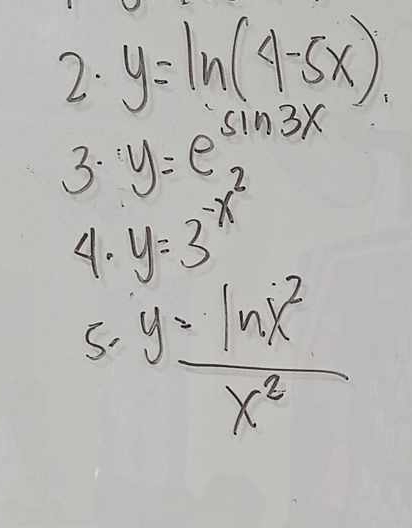 2. y = ln(4-5x)
3. y = e^sin3x
4. y = 3^-x^2
5. y = lnx^2
x^2